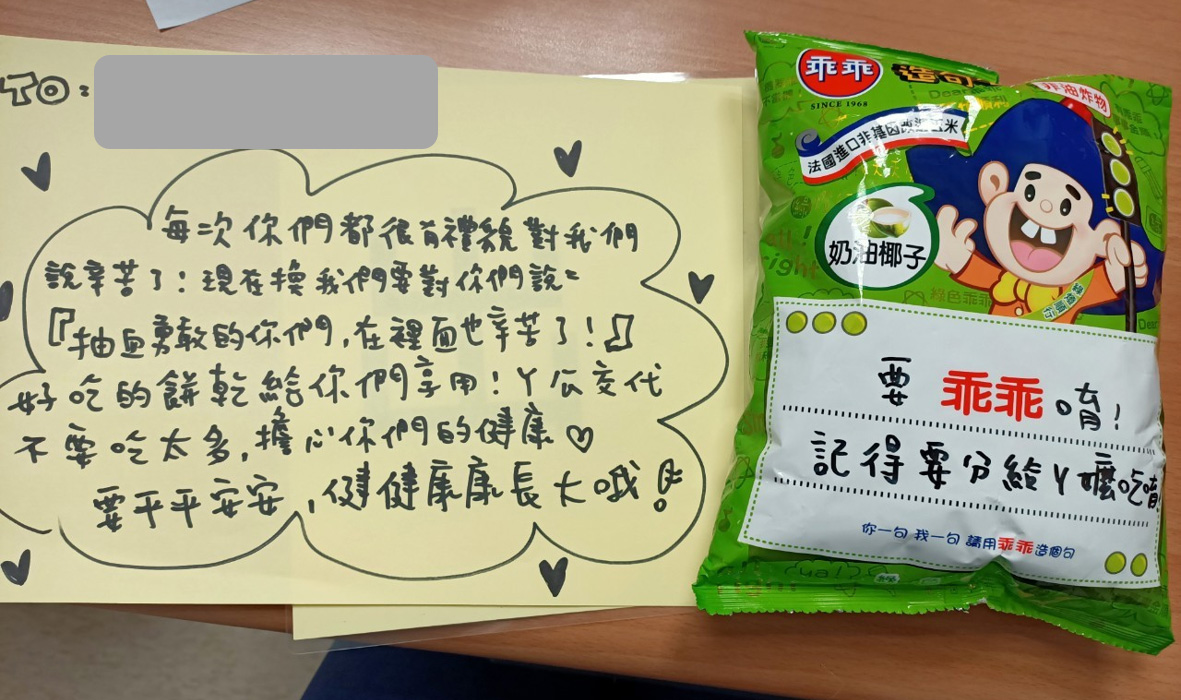 TO:
每次你們都很有禮貌對我們
說辛苦了!現在換我們要對你們說=
『抽血勇敢的你們,在裡面也辛苦了!』
好吃的餅乾給你們享用!ㄚ公交代
不要吃太多,擔心你們的健康♡
要平平安安,健健康康長大哦!
乖乖
SINCE 1968
造句
非油炸物
法國進口非基因改造玉米
奶油椰子
綠燈順行
要 乖乖 唷!
記得要分給ㄚ嬤吃唷
你一句 我一句 請用乖乖造個句